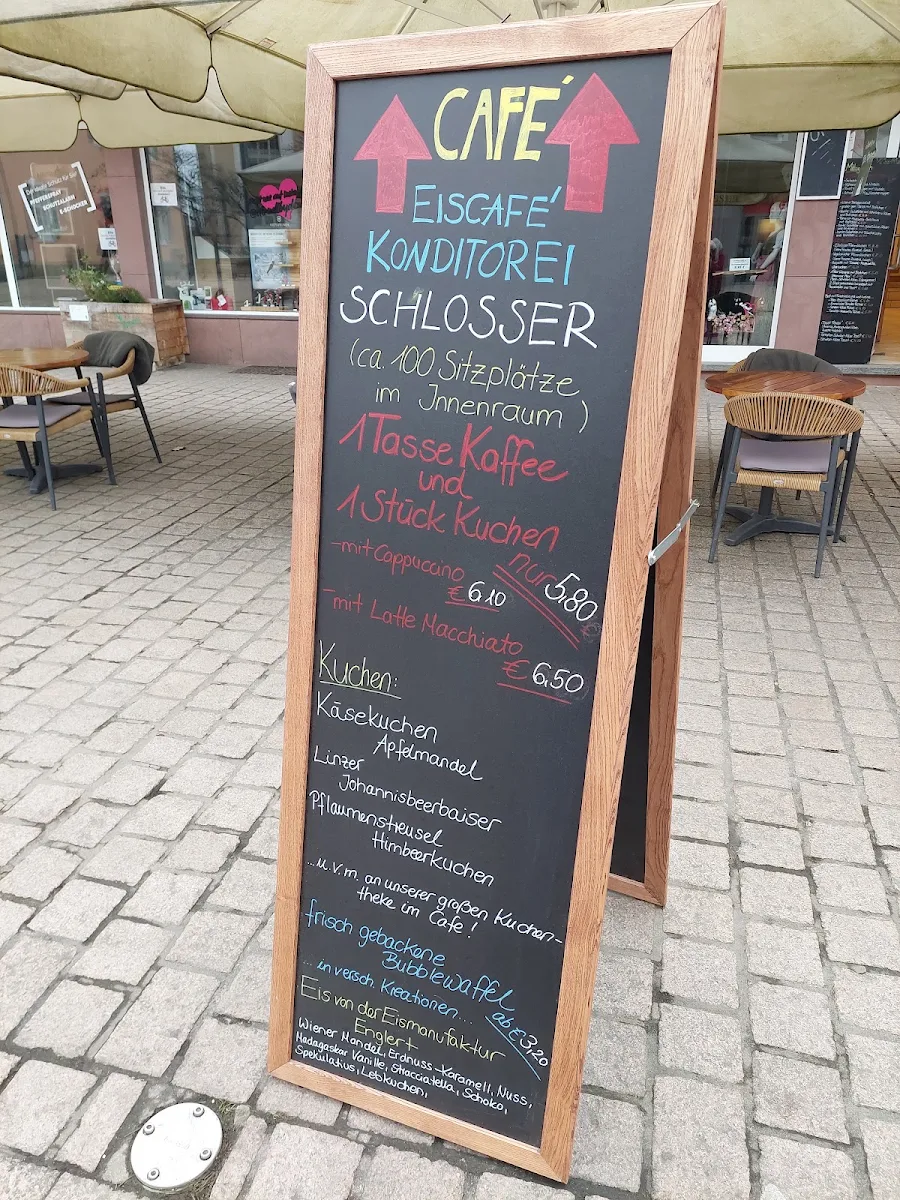 CAFÉ
EISCAFÉ
KONDITOREI
SCHLOSSER
(ca. 100 Sitzplätze
im Innenraum)
1 Tasse Kaffee
und
1 Stück Kuchen
nur 5,80 €
- mit Cappuccino
€ 6.10
- mit Latte Macchiato
€ 6,50
Kuchen:
Käsekuchen
Apfelmandel
Linzer
Johannisbeerbaiser
Pflaumenstreusel
Himbeerkuchen
...u.v.m. an unserer großen Kuchen-
theke im Café!
frisch gebackene
Bubblewaffel
... in versch. Kreationen...
ab € 3,20
Eis von der Eismanufaktur
Englert
Wiener Mandel, Erdnuss-Karamell, Nuss,
Madagaskar Vanille, Stracciatella, Schoko,
Spekulatius, Lebkuchen,
PFEFFERSPRAY
SCHUTZALARM
E-SCHOCKER